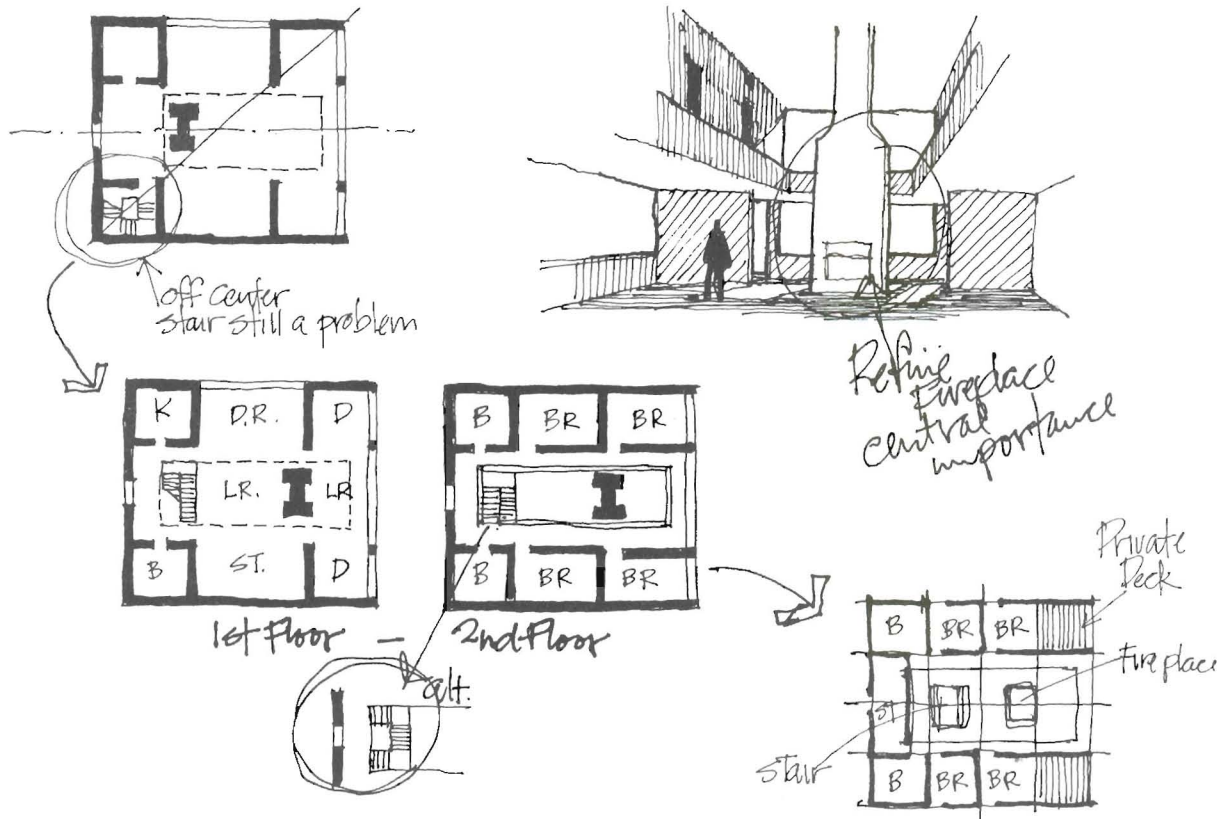 off center
stair still a problem
Refine
Fireplace
central
importance
K D.R. D
LR. LR
B ST. D
1st Floor — 2nd Floor
B BR BR
B BR BR
alt.
Private
Deck
B BR BR
Fireplace
ST
Stair
B BR BR